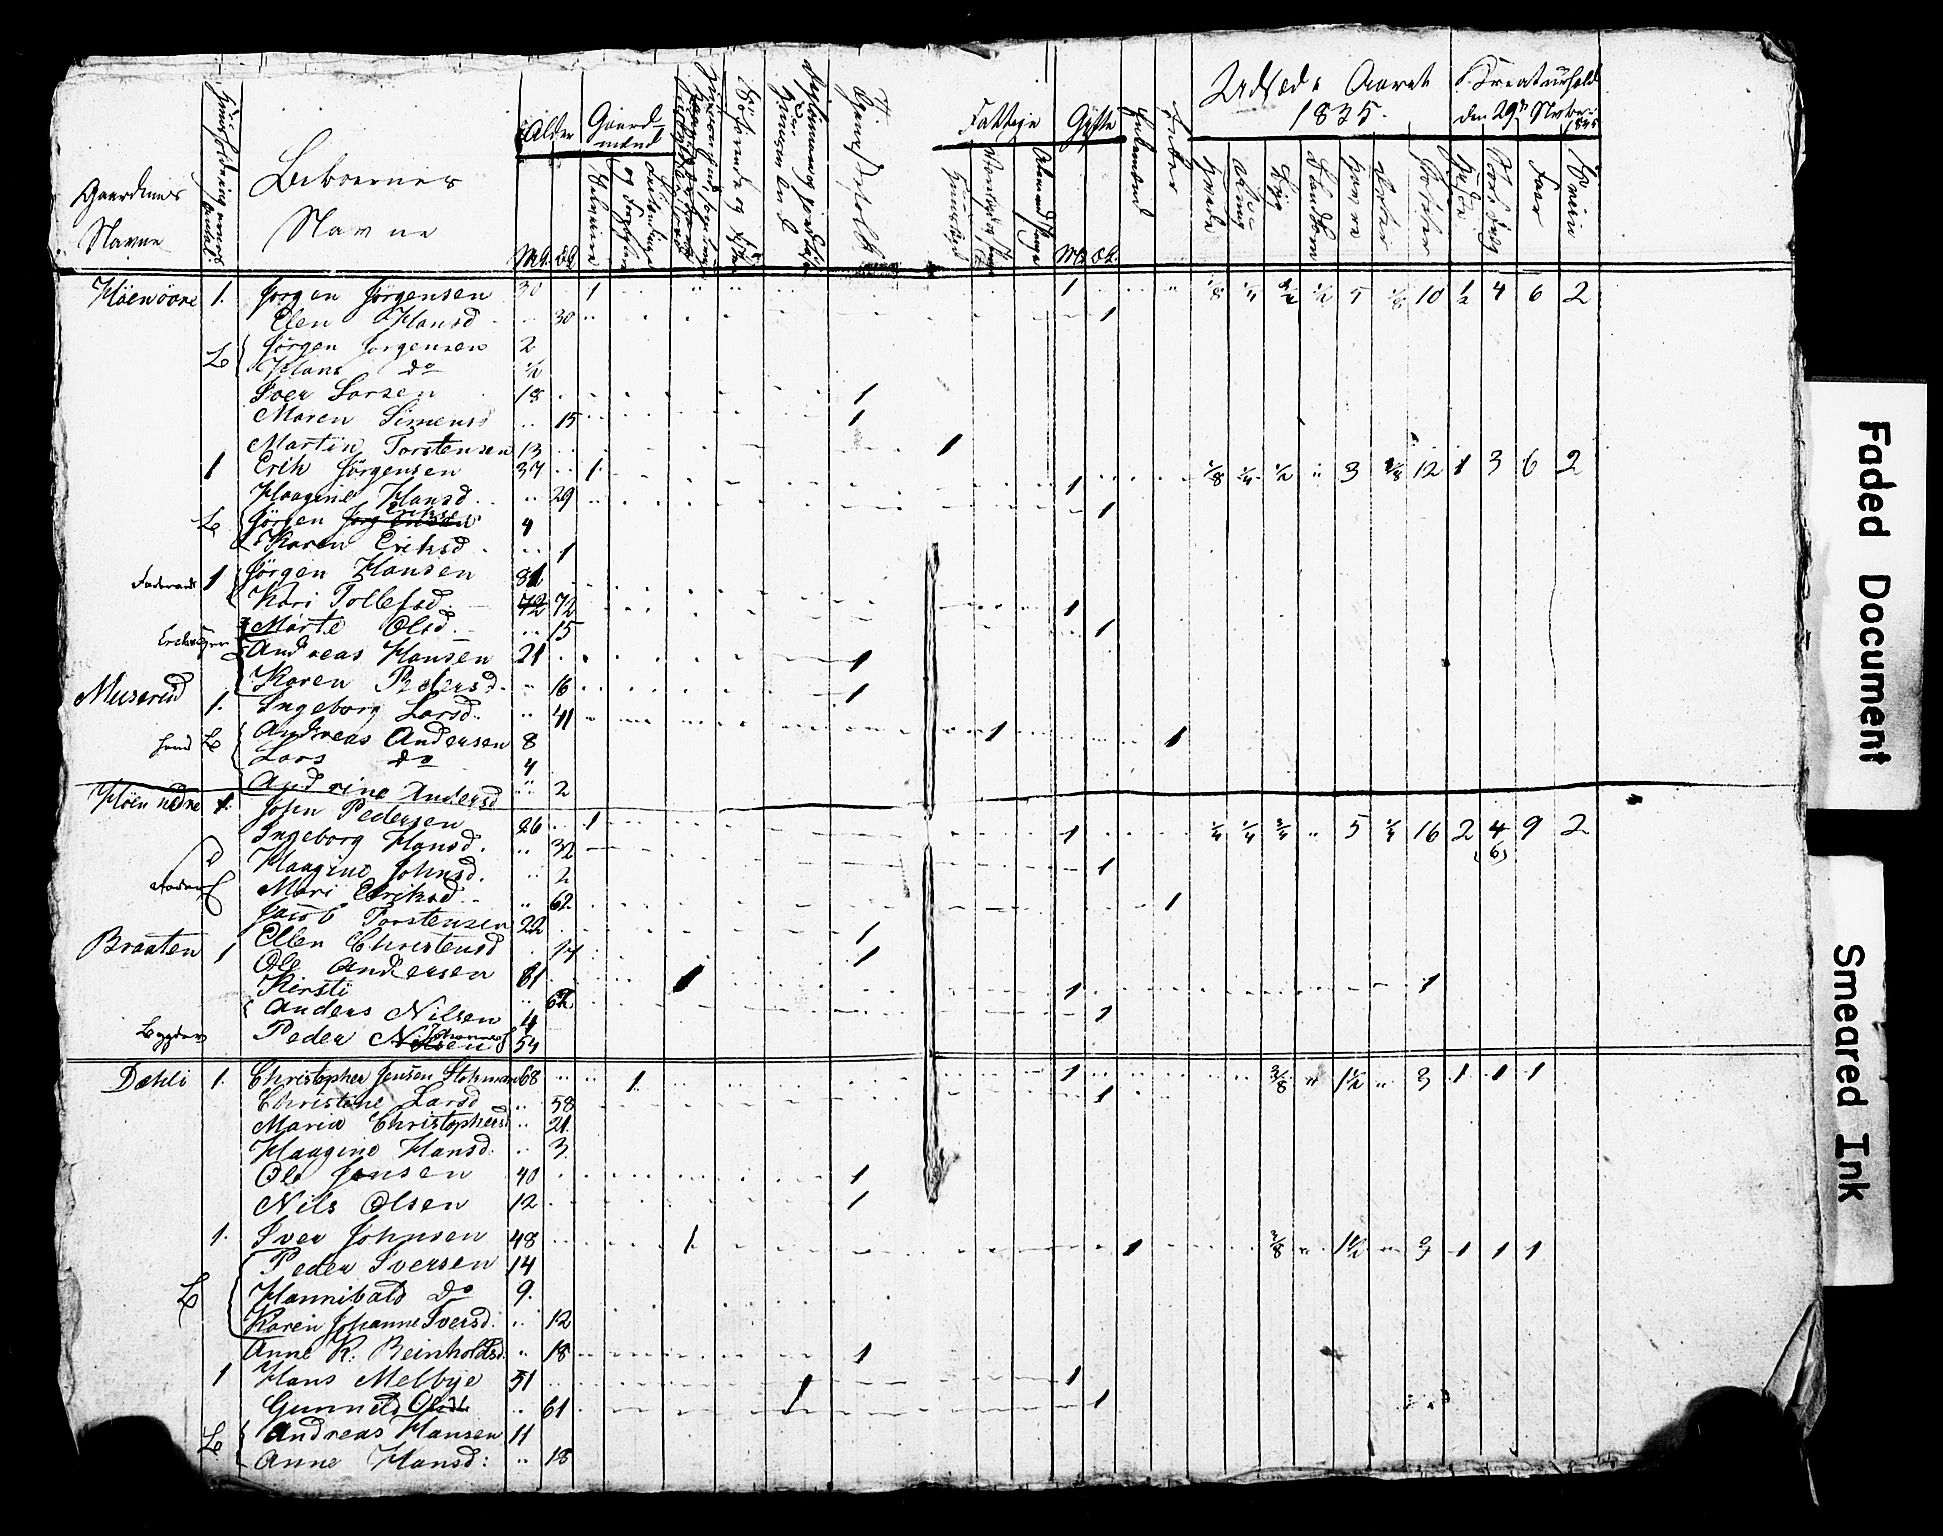 Udsæd i Aaret 1835.
Kreaturhold den 29de Novbr: 1835
Gaardenes Navne
Beboernes Navne
Alder
Gaardmænd
Fattige
Gifte
Tjenestefolk
Enkemænd
Enker
Md. Qd.
Selveiere
og Forpagtere
Hvede
Rug
Blandkorn
Havre
Erter
Poteter
Heste
Faar
Sviin
Høen øvre 1. Jørgen Jørgensen 30 1 1 1/8 1/4 1/2 5 1/8 10 1/2 4 6 2
Elen Hansd 30 1
Jørgen Jørgensen 2
Hans do 1/2
Iver Larsen 18 1
Maren Simensd 15 1
Martin Torstensen 13 1
1 Erik Jørgensen 37 1 1 1/8 1/4 1/2 " 3 1/8 12 1 3 6 2
Haagine Hansd 29 1
Jørgen Eriks 4
Karen Eriksd 1
1 Jørgen Hansen 81 1
Kari Tollefsd. 72 72 1
Marte Olsd. 15
Andreas Hansen 21 1
Karen Pedersd. 16 1
1. Ingeborg Larsd. 41 1 1
Andreas Andersen 8
Lars do 4
Andrine Andersd 2
Høen nedre 1. John Pedersen 26 1 1 1/4 1/4 3/4 " 5 1/4 16 2 4 9 2
(6)
Ingeborg Hansd. 32 1
Haagine Johnsd. 2
Mari Eriksd 62 1
Jacob Torstensen 22 1
Ellen Christensd 14 1
Braaten 1 Ole Andersen 61 1 1 1
Kirsti 62 1
Anders Nilsen 4
Peder Nilsen Johannes 54
Dæhli 1. Christopher Jensen Stohman 68 1 1 3/8 " 1 1/2 " 3 1 1 1
Christine Larsd 58 1
Maria Christophersd 21
Haagine Hansd. 3
Ole Jensen 40 1
Nils Olsen 12 1
1. Iver Johnsen 48 1 1 3/8 " 1 1/2 3 1 1 1
Peder Iversen 14
Hannibald do 9.
Karen Johanne Iversd. 12
Anne K. Reinholdsd. 18 1
1 Hans Melbye 51 1
Gunnild Olsd 61 1 1
Andreas Hansen 11
Anne Hansd: 18
Faded Document
Smeared Ink